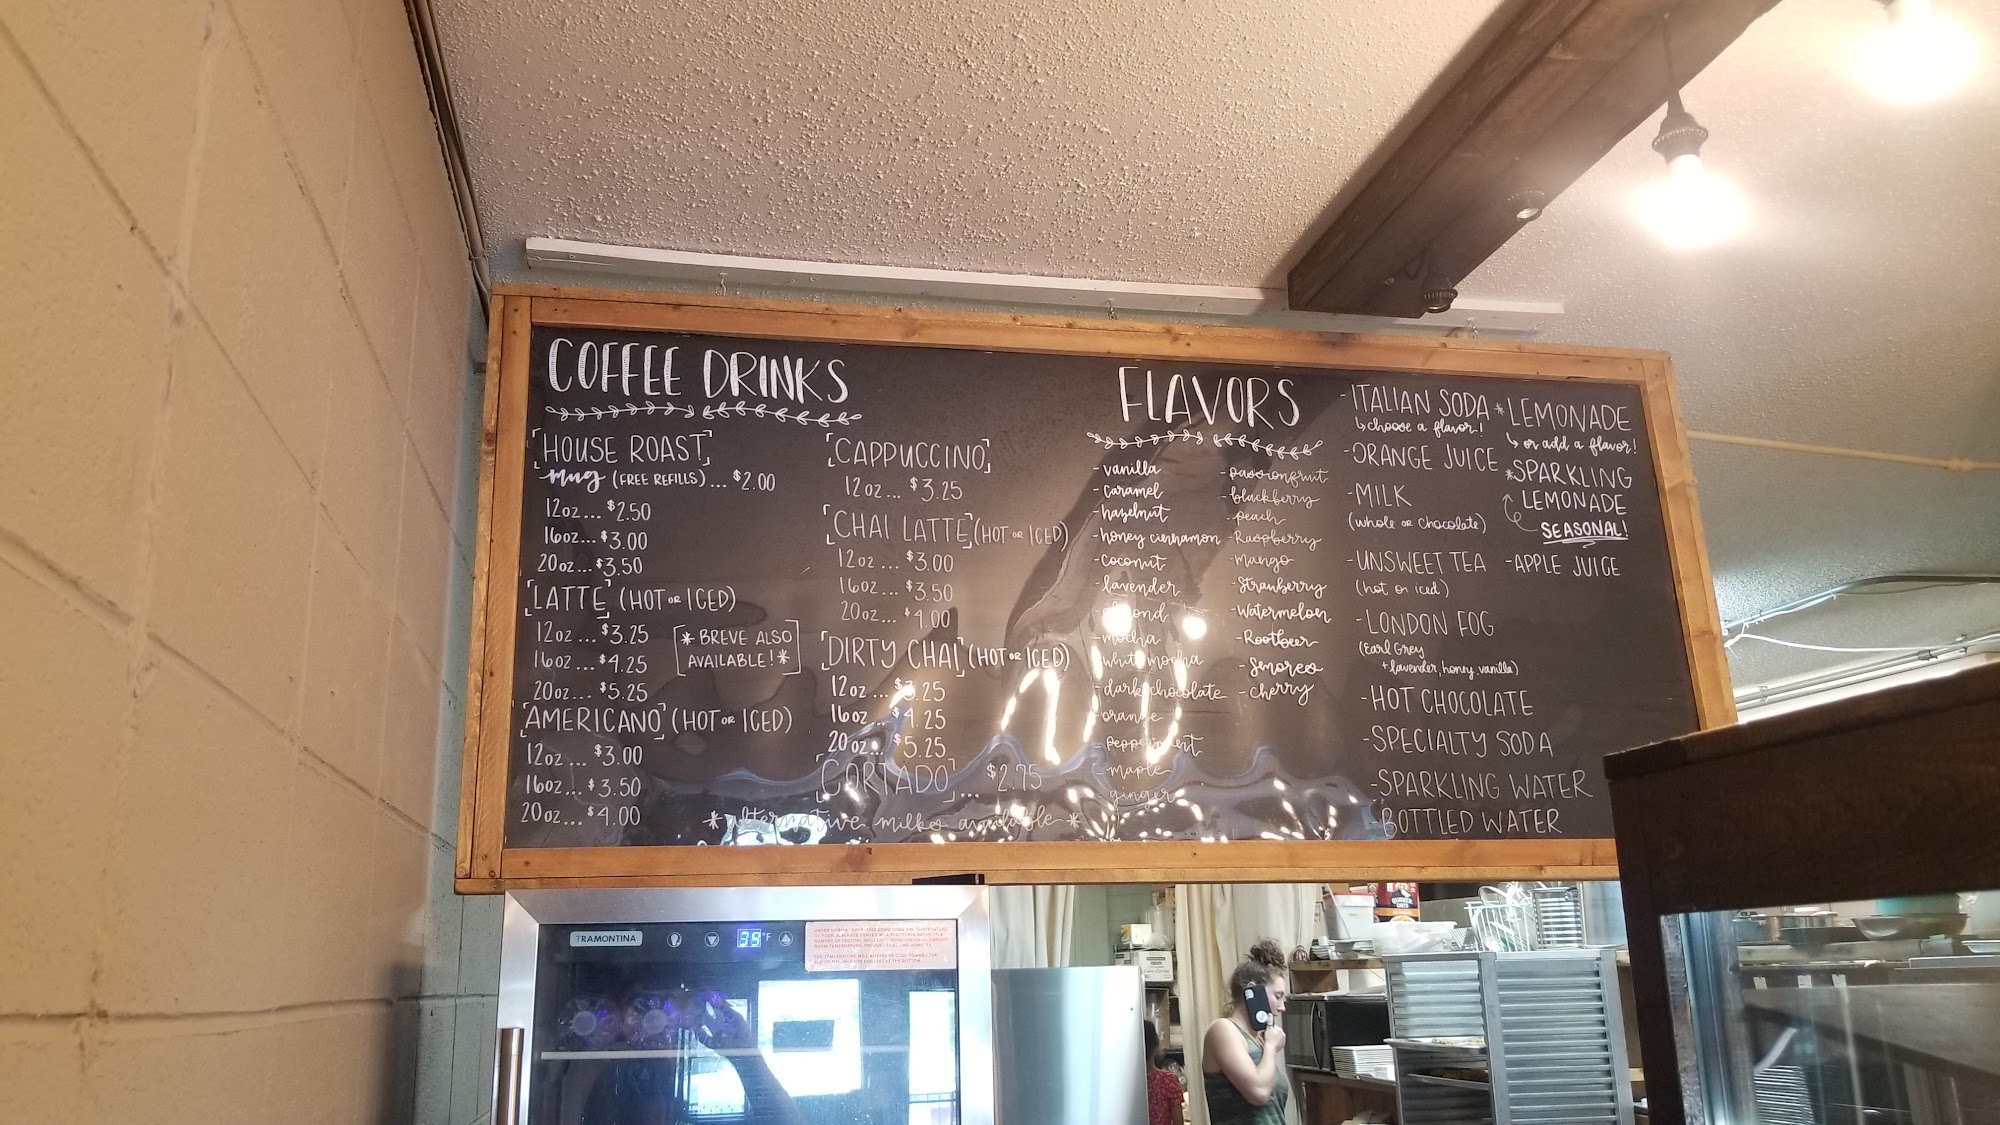 COFFEE DRINKS
HOUSE ROAST
mug (FREE REFILLS)... $2.00
12oz... $2.50
16oz... $3.00
20oz... $3.50
LATTE (HOT or ICED)
12oz... $3.25
16oz... $4.25
20oz... $5.25
* BREVE ALSO
AVAILABLE! *
AMERICANO (HOT or ICED)
12oz... $3.00
16oz... $3.50
20oz... $4.00
CAPPUCCINO
12oz... $3.25
CHAI LATTE (HOT or ICED)
12oz... $3.00
16oz... $3.50
20oz... $4.00
DIRTY CHAI (HOT or ICED)
12oz... $3.25
16oz... $4.25
20oz... $5.25
CORTADO... $2.75
* alternative milks available *
FLAVORS
- vanilla
- caramel
- hazelnut
- honey cinnamon
- coconut
- lavender
- almond
- mocha
- white mocha
- dark chocolate
- orange
- peppermint
- maple
- ginger
- passionfruit
- blackberry
- peach
- Raspberry
- mango
- Strawberry
- Watermelon
- Rootbeer
- Smores
- cherry
- ITALIAN SODA
↳ choose a flavor!
- ORANGE JUICE
- MILK
(whole or chocolate)
- UNSWEET TEA
(hot or iced)
- LONDON FOG
(Earl Grey
+ lavender, honey, vanilla)
- HOT CHOCOLATE
- SPECIALTY SODA
- SPARKLING WATER
- BOTTLED WATER
* LEMONADE
↳ or add a flavor!
* SPARKLING
LEMONADE
SEASONAL!
- APPLE JUICE
TRAMONTINA
39 °F
QUAKER
OATS